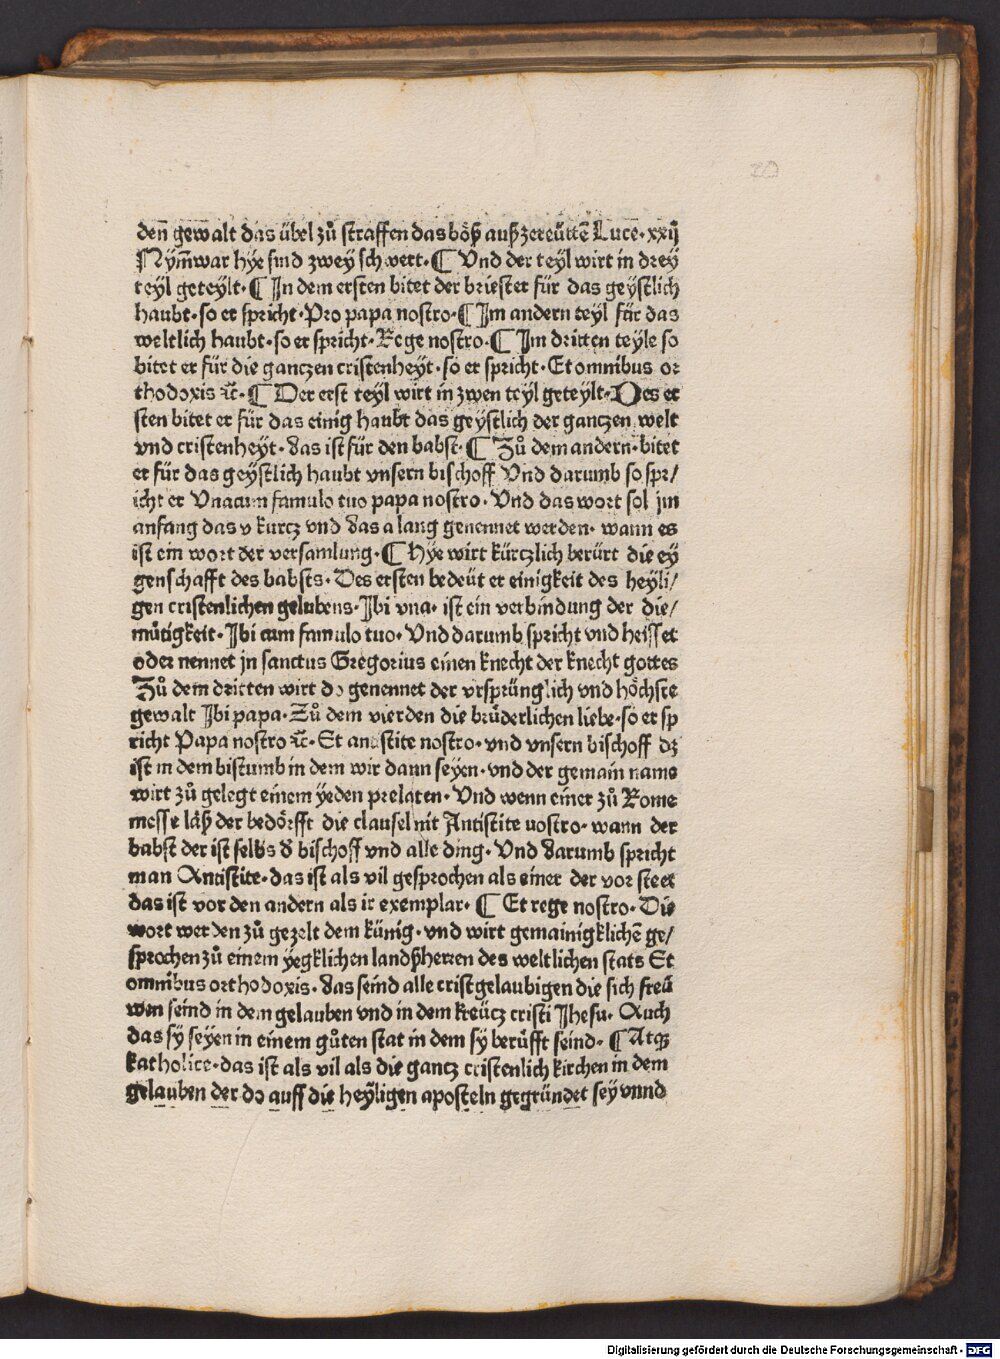 20
den̄ gewalt das übel zů straffen das bo̊ß außzereu̇tten̄ Luce·xxij
Nym̄war hye sind zwey schwert·¶ Vnd der teyl wirt in drey
teyl geteylt·¶ In dem ersten bitet der briester für das geÿstlich
haubt·so er spricht·Pro papa nostro·¶ Im andern teyl für das
weltlich haubt·so er spricht·Rege nostro·¶ Im dritten teyle so
bitet er für die ganczen cristenheÿt·so er spricht·Et omnibus or
thodoxis ⁊c̄·¶ Der erst teyl wirt in zwen teyl geteylt·Des er
sten bitet er für das einig haubt das geÿstlich der ganczen welt
vnd cristenheyt·das ist für den babst·¶ Zů dem andern·bitet
er für das geÿstlich haubt vnsern bischoff Vnd darumb so spr/
icht er Vnacum famulo tuo papa nostro·Vnd das wort sol jm
anfang das v kurcz vnd das a lang genennet werden·wann es
ist ein wort der versamlung·¶ Hÿe wirt kürczlich berürt die eÿ
genschafft des babsts·Des ersten bedeüt er einigkeit des heÿli/
gen cristenlichen gelubens·Ibi vna·ist ein verbindung der die/
mütigkeit·Ibi cum famulo tuo·Vnd darumb spricht vnd heisset
oder nennet jn sanctus Gregorius einen knecht der knecht gottes
Zů dem dritten wirt do genennet der vrsprünglich vnd höchste
gewalt Ibi papa·Zů dem vierden die brüderlichen liebe·so er sp
richt Papa nostro ⁊c̄·Et antistite nostro·vnd vnsern bischoff dz
ist in dem bistumb in dem wir dann seyen·vnd der gemain name
wirt zů gelegt einem ÿeden prelaten·Vnd wenn einer zů Rome
messe läß der bedörfft die clausel nit Antistite nostro·wann der
babst der ist selbs d̄ bischoff vnd alle ding·Vnd darumb spricht
man Antistite·das ist als vil gesprochen als einer der vor steet
das ist vor den andern als ir exemplar·¶ Et rege nostro·Die
wort werden zů gezelt dem künig·vnd wirt gemainigklichē ge/
sprochen zů einem ÿegklichen landßherren des weltlichen stats Et
omnibus orthodoxis·das seind alle cristgelaubigen die sich freü
wen seind in dem gelauben vnd in dem kreücz cristi Jhesu·Auch
das sy seyen in einem gůten stat in dem sy berüfft seind·¶ Atqꝫ
katholice·das ist als vil als die gancz cristenlich kirchen in dem
gelauben der do auff die heÿligen aposteln gegründet sey vnnd
Digitalisierung gefördert durch die Deutsche Forschungsgemeinschaft - DFG